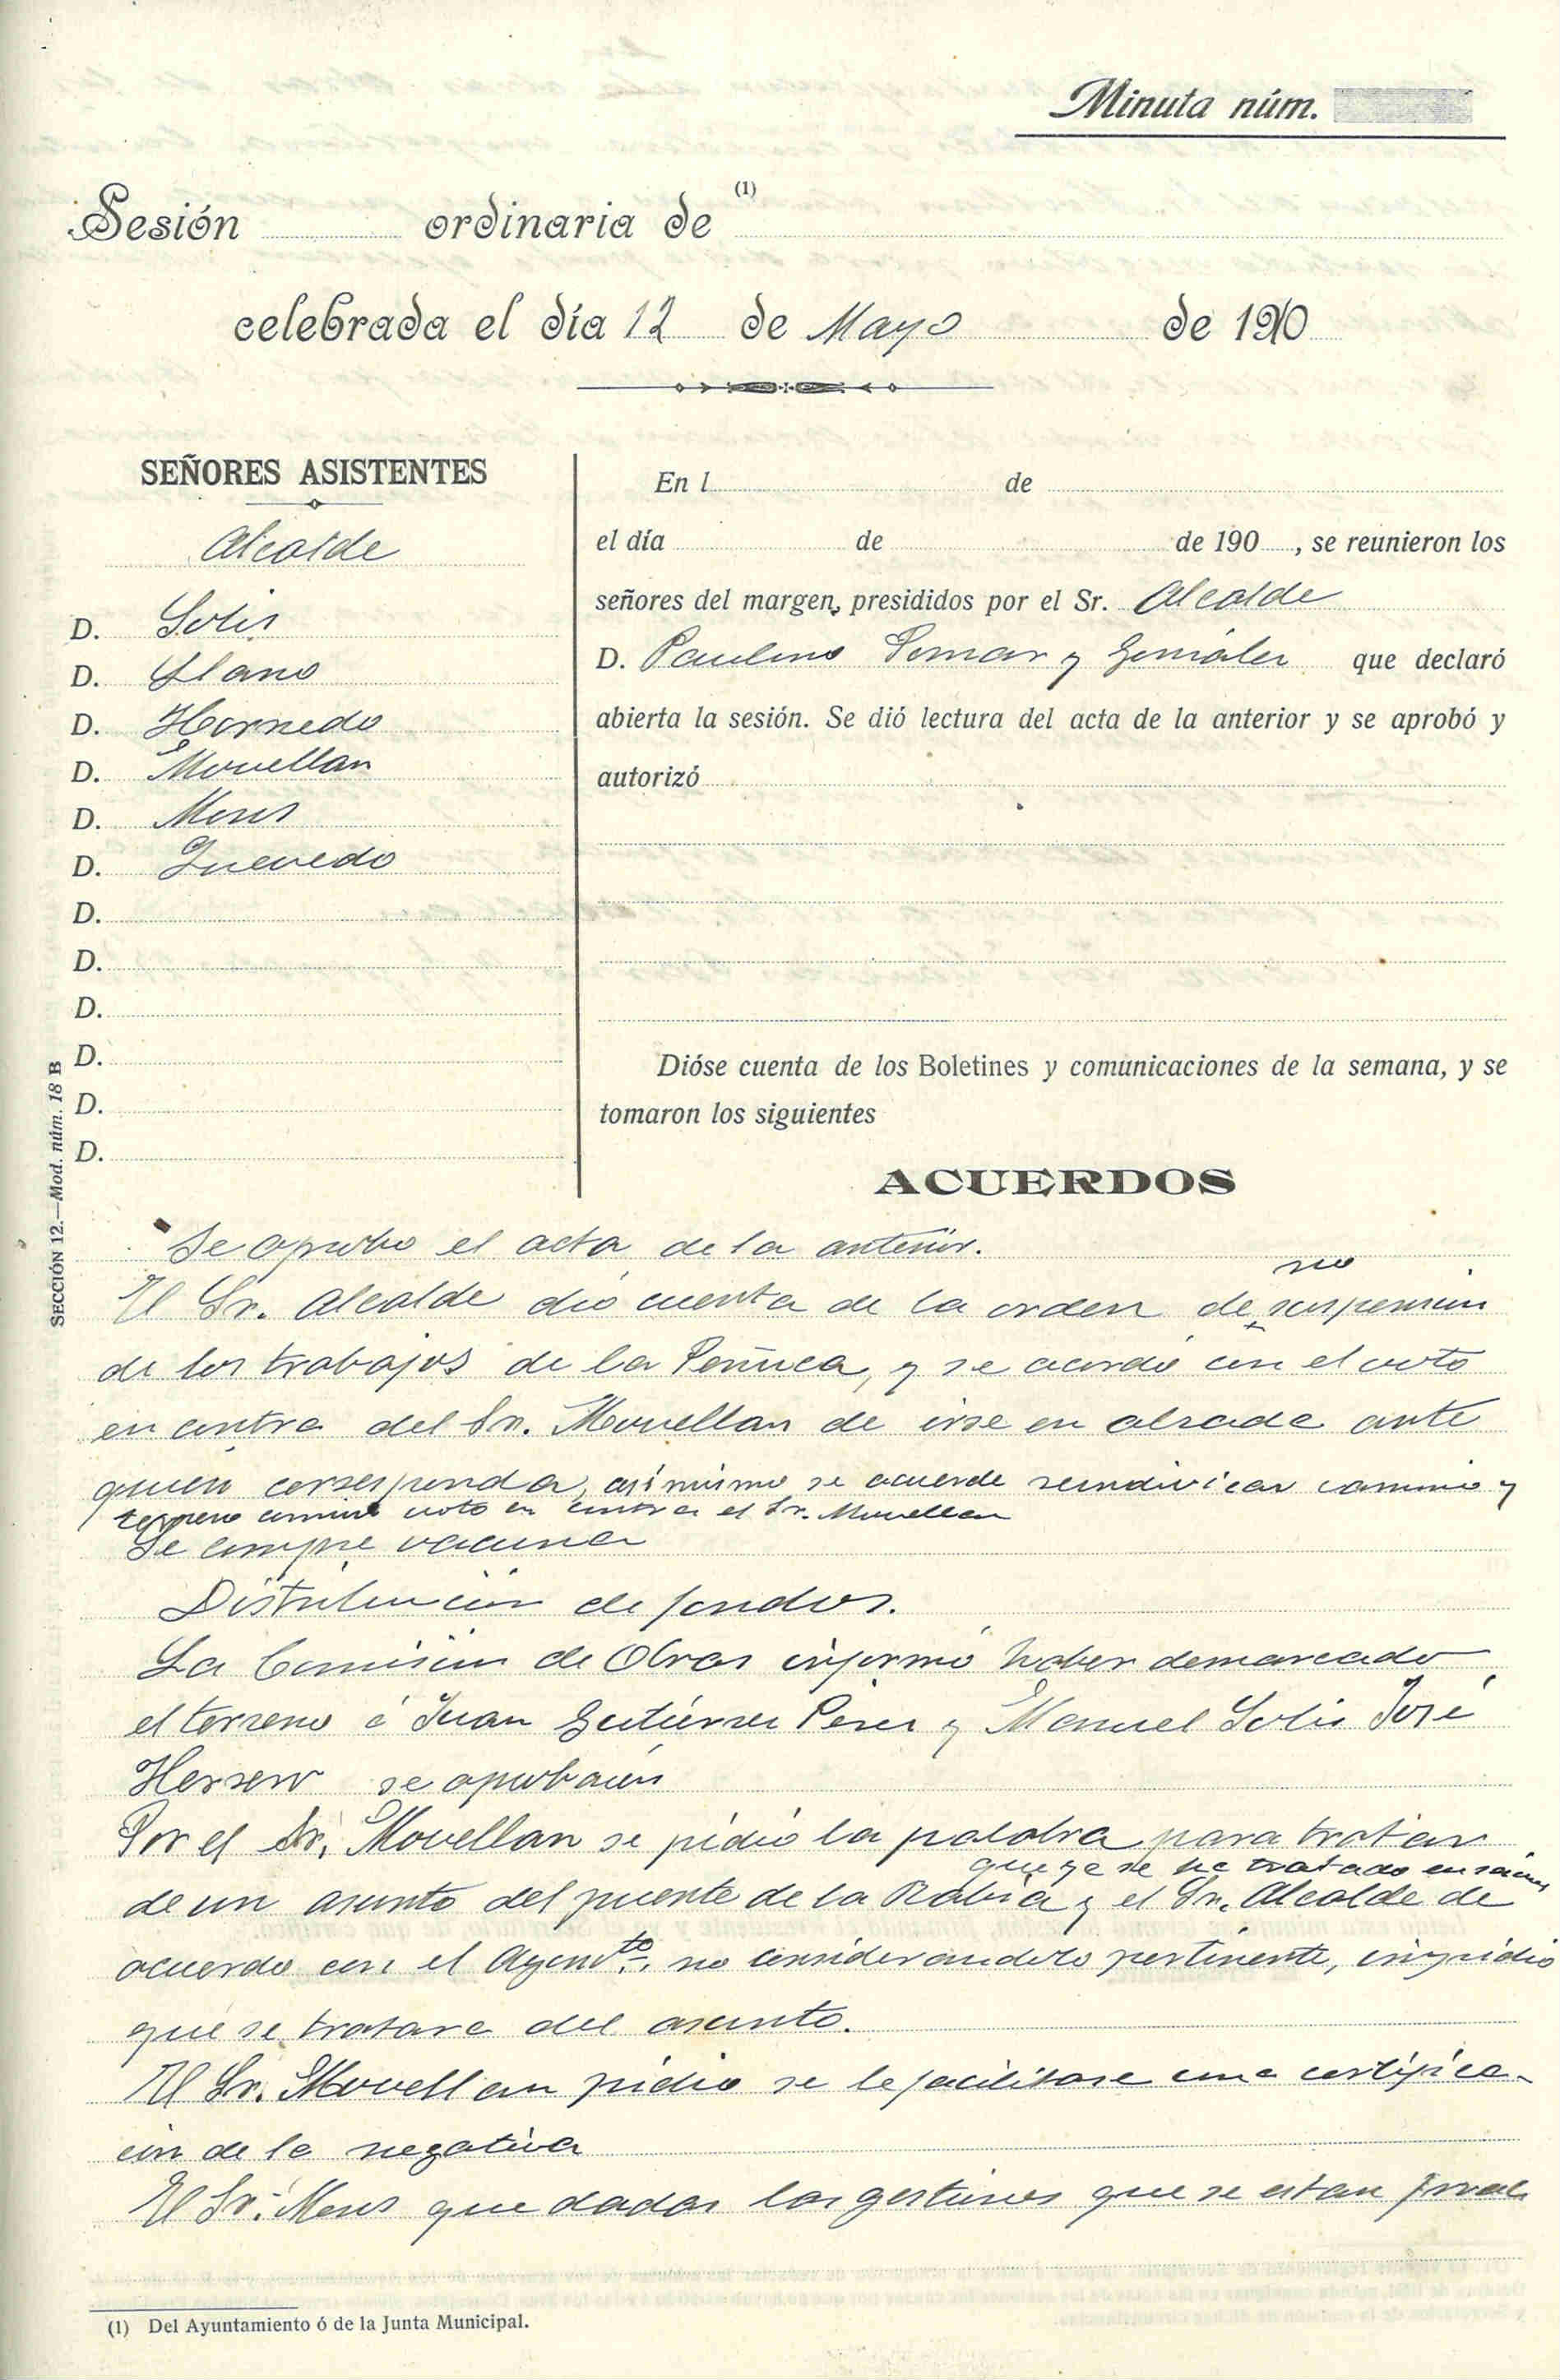 Minuta núm.
Sesión ordinaria de (1)
celebrada el día 12 de Mayo de 1910
SEÑORES ASISTENTES
Alcalde
D. Solis
D. Llano
D. Hornedo
D. Movellan
D. Mons
D. Quevedo
D.
D.
D.
D.
D.
D.
SECCIÓN 12.—Mod. núm. 18 B
En l de
el día de de 190 , se reunieron los
señores del margen, presididos por el Sr. Alcalde
D. Paulino y que declaró
abierta la sesión. Se dió lectura del acta de la anterior y se aprobó y
autorizó
Dióse cuenta de los Boletines y comunicaciones de la semana, y se
tomaron los siguientes
ACUERDOS
Se aprobo el acta de la anterior.
no
El Sr. Alcalde dió cuenta de la orden de suspension
de los trabajos de la Peñuca, y se acordó con el voto
en contra del Sr. Movellan de irse en alzada ante
quien corresponda, asi mismo se acuerde reindivicar camino y
terreno comun voto en contra el Sr. Movellan
Se compre vacuna
Distribucion de fondos.
La Comision de Obras informó haber demarcado
el terreno á Juan Gutiérrez Pérez y Manuel Solis José
Herrero se aprobaron
Por el Sr. Movellan se pidió la palabra para tratar
que ya se ha tratado en
de un asunto del puente de la Rabia y el Sr. Alcalde de
acuerdo con el Ayuntº. no considerandolo pertinente, impidio
que se tratara del asunto.
El Sr. Movellan pidio se le facilitase una certifica-
cion de la negativa
El Sr. Mons que dadas las gestiones que se estan
(1) Del Ayuntamiento ó de la Junta Municipal.